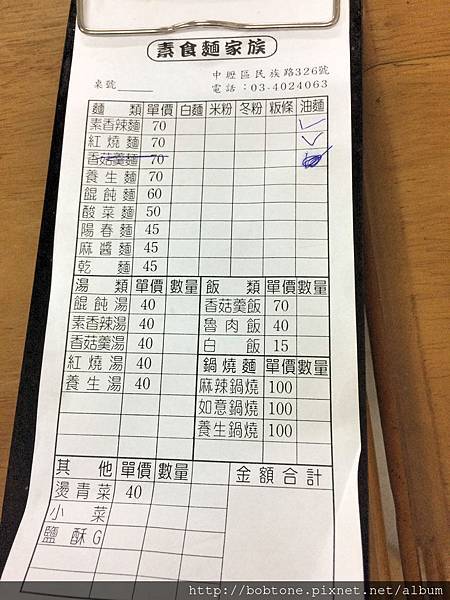 素食麵家族
中壢區民族路326號
桌號 電話：03-4024063
麵類 單價 白麵 米粉 冬粉 粄條 油麵
素香辣麵 70
紅燒麵 70
香菇羹麵 70
養生麵 70
餛飩麵 60
酸菜麵 50
陽春麵 45
麻醬麵 45
乾麵 45
湯類 單價 數量 飯類 單價 數量
餛飩湯 40 香菇羹飯 70
素香辣湯 40 魯肉飯 40
香菇羹湯 40 白飯 15
紅燒湯 40 鍋燒麵 單價 數量
養生湯 40 麻辣鍋燒 100
如意鍋燒 100
養生鍋燒 100
其他 單價 數量 金額合計
燙青菜 40
小菜
鹽酥G
http://bobtone.pixnet.net/album